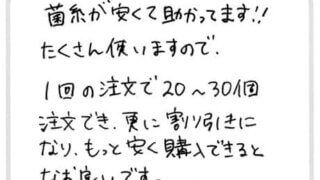 菌糸が安くて助かってます!!
たくさん使いますので、
1回の注文で20〜30個
注文でき、更に割り引きに
なり、もっと安く購入できると
なお良いです。